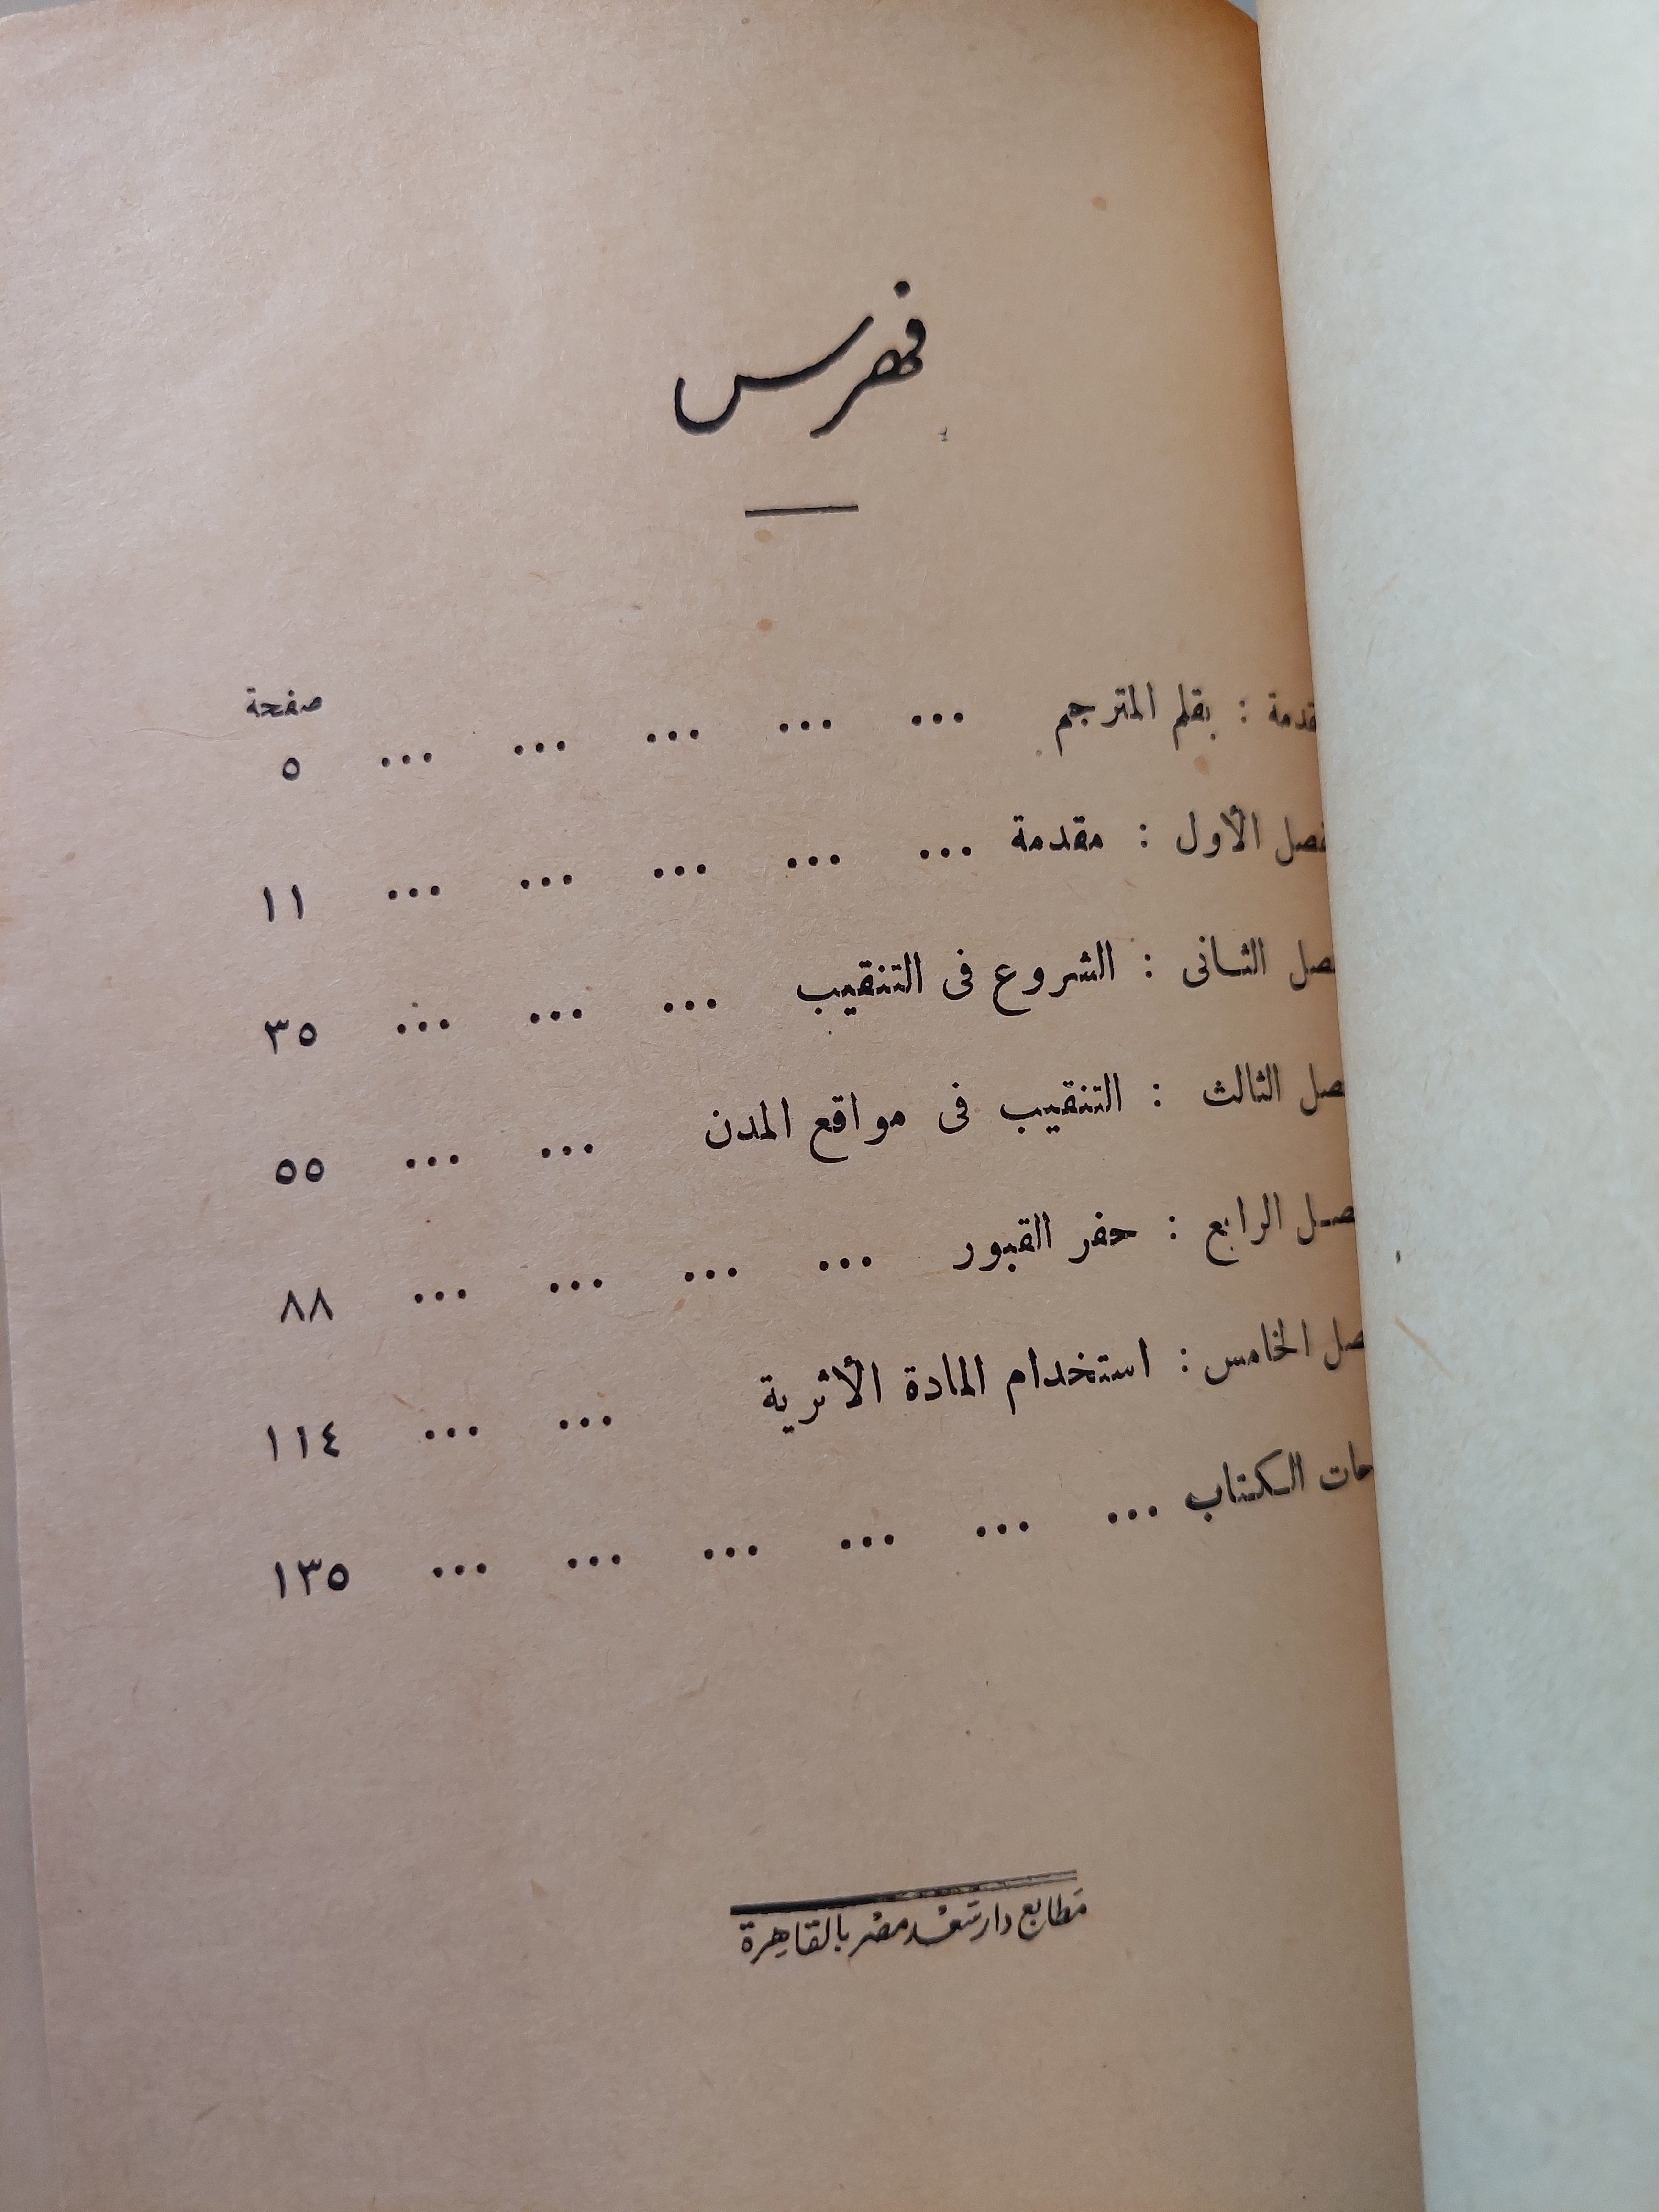 فهرس
صفحة
قدمة : بقلم المترجم ... ... ... ... ... ٥
فصل الأول : مقدمة ... ... ... ... ... ١١
صل الثانى : الشروع فى التنقيب ... ... ... ٣٥
صل الثالث : التنقيب فى مواقع المدن ... ... ٥٥
صل الرابع : حفر القبور ... ... ... ... ٨٨
صل الخامس : استخدام المادة الأثرية ... ... ١١٤
حات الكتاب ... ... ... ... ... ... ١٣٥
مطابع دار سعد مصر بالقاهرة